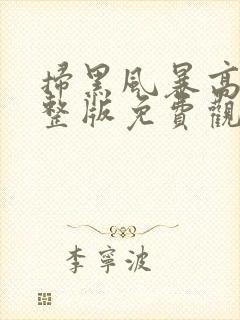 掃黑風暴高
整版免費觀
李寧波